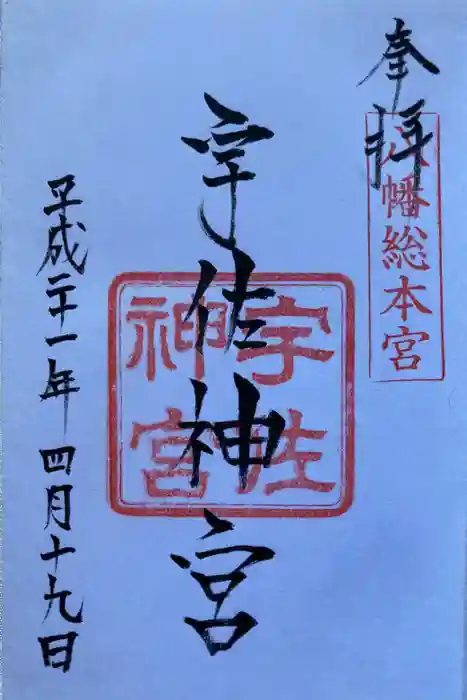 奉拝
八幡総本宮
宇佐神宮
宇佐
神宮
平成二十一年 四月十九日